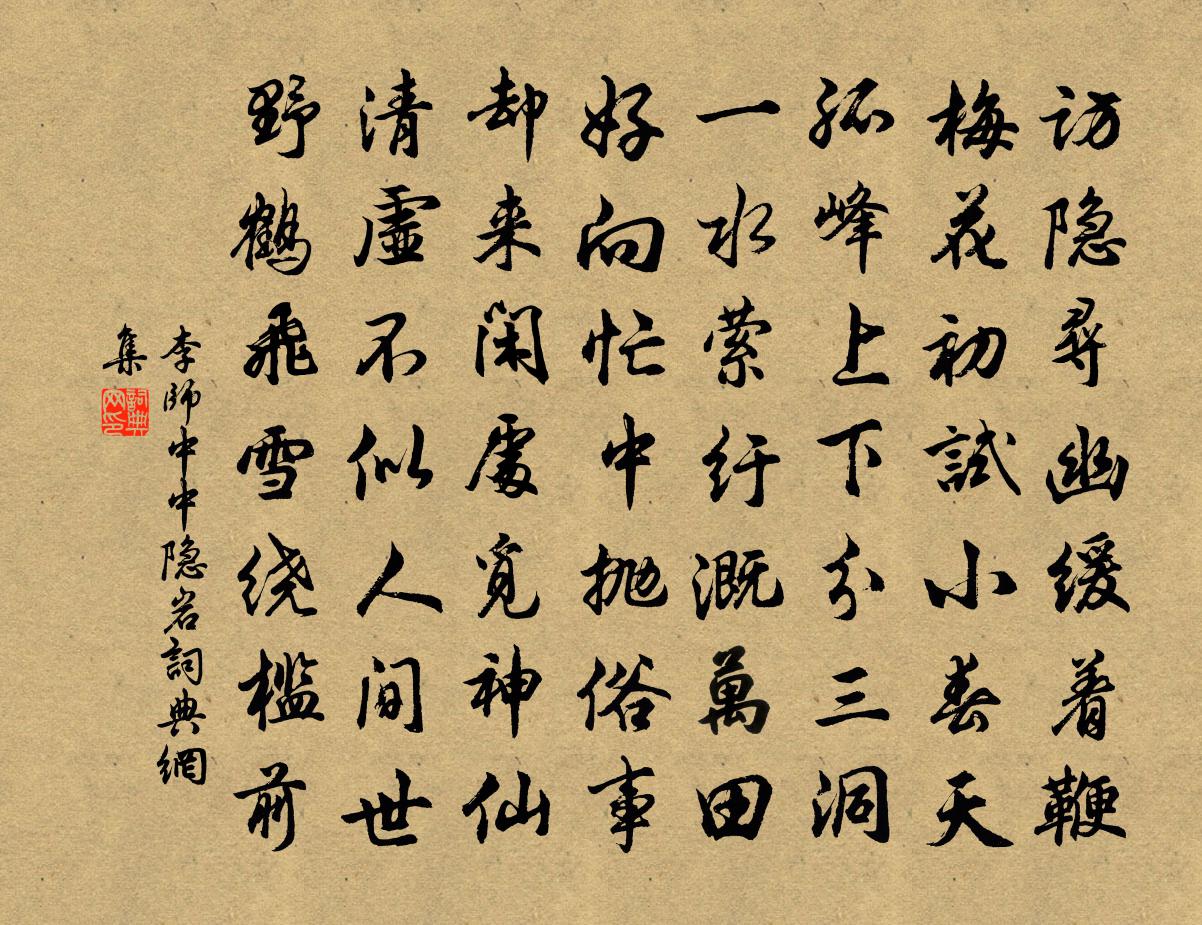 访隐寻幽缓着鞭
梅花初試小春天
孤峰上下分三洞
一水萦纡溉萬田
好向忙中抛俗事
却来闲處觅神仙
清虚不似人间世
野鹤飛雪绕槛前
李師中中隐岩詞典網
集
詞典網印